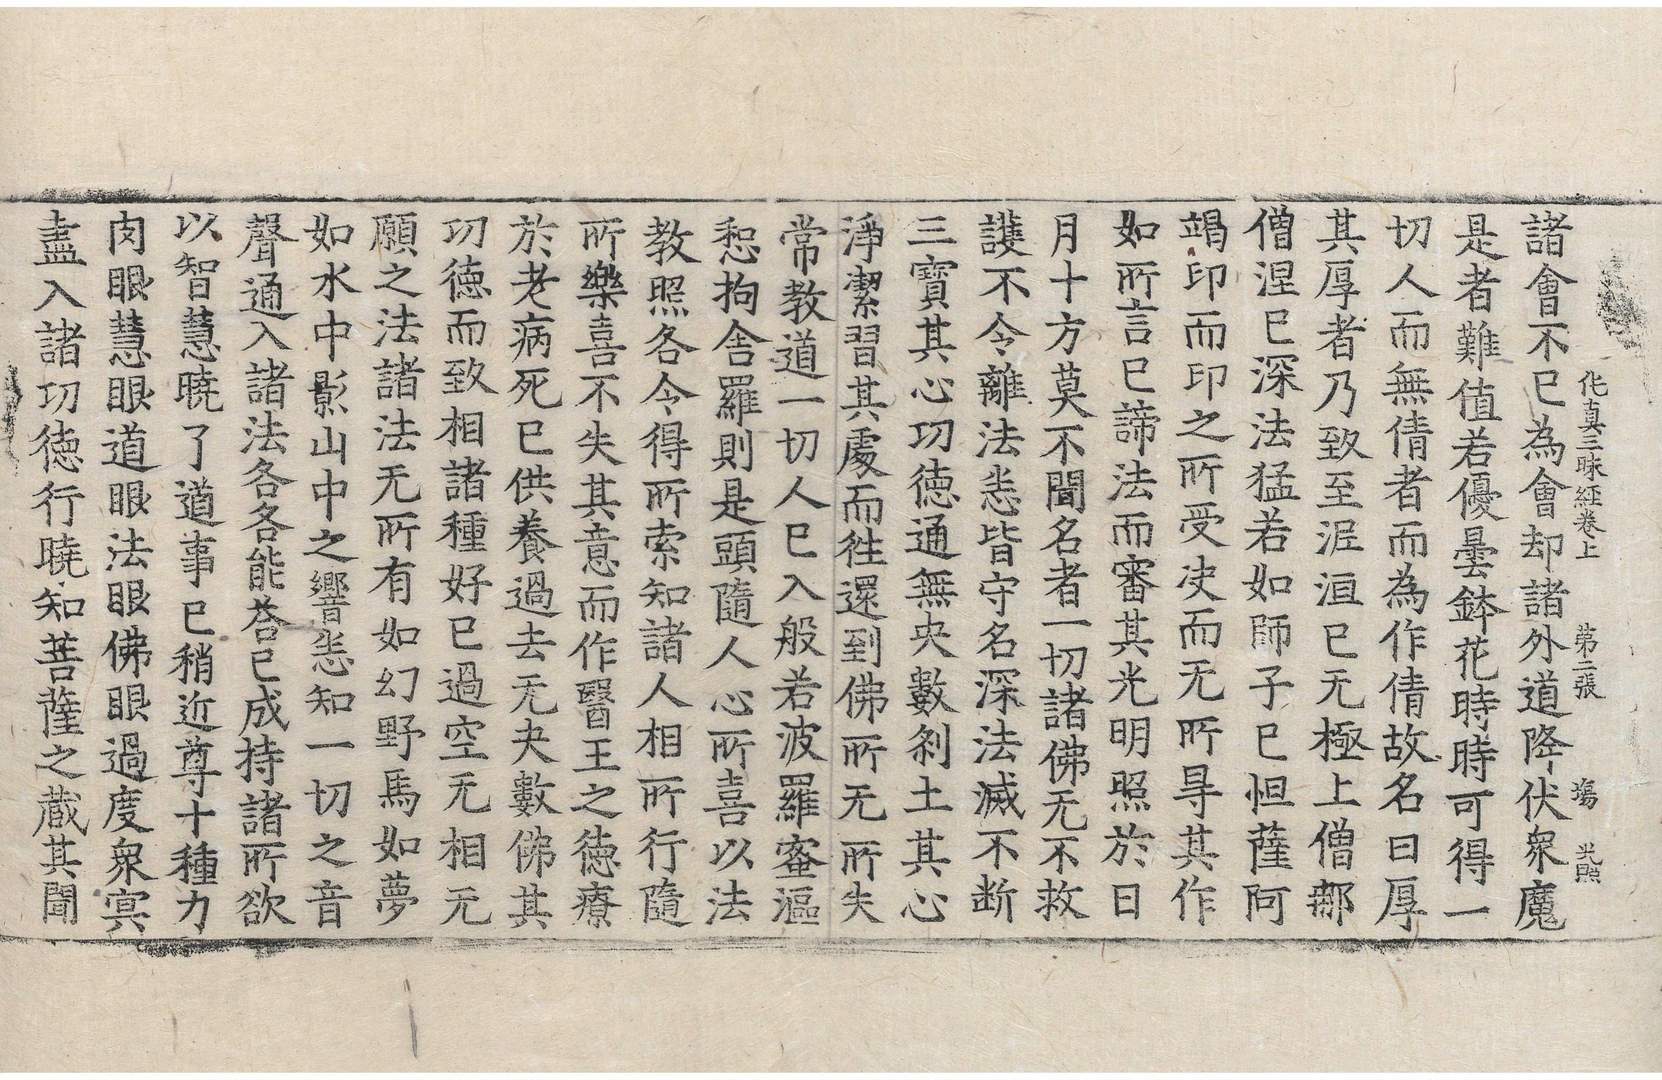 伅真三昧経卷上 第二張 塲 光照
諸會不已為會却諸外道降伏衆魔
是者難值若優曇鉢花時時可得一
切人而無倩者而為作倩故名曰厚
其厚者乃致至泥洹已无極上僧那
僧涅已深法猛若如師子已怛薩阿
竭印而印之所受决而无所㝵其作
如所言已諦法而審其光明照於日
月十方莫不聞名者一切諸佛无不救
護不令離法悉皆守名深法滅不断
三寶其心功徳通無央數剎土其心
淨潔習其處而徃還到佛所无所失
常教道一切人已入般若波羅蜜漚
惒拘舍羅則是頭隨人心所喜以法
教照各令得所索知諸人相所行隨
所樂喜不失其意而作醫王之徳療
於老病死已供養過去无央數佛其
功徳而致相諸種好已過空无相无
願之法諸法无所有如幻野馬如夢
如水中影山中之響悉知一切之音
聲通入諸法各各能荅已成持諸所欲
以智慧曉了道事已稍近尊十種力
肉眼慧眼道眼法眼佛眼過度衆冥
盡入諸功徳行曉知菩薩之蔵其聞